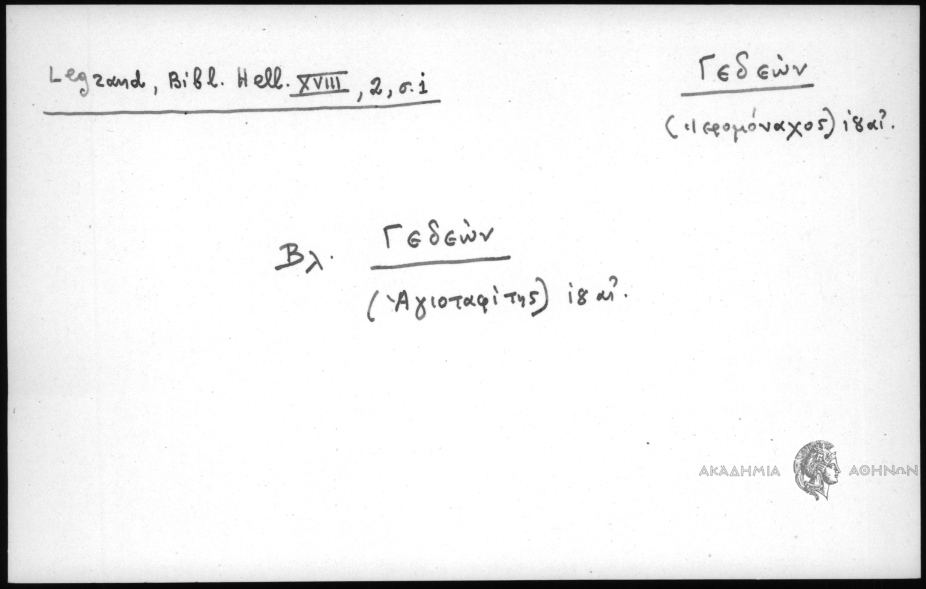 Legrand, Bibl. Hell. XVIII, 2, σ. i
Γεδεὼν
(ἱερομόναχος) ιηαἰ.
Βλ. Γεδεὼν
(Ἁγιοταφίτης) ιηαἰ.
ΑΚΑΔΗΜΙΑ ΑΘΗΝΩΝ